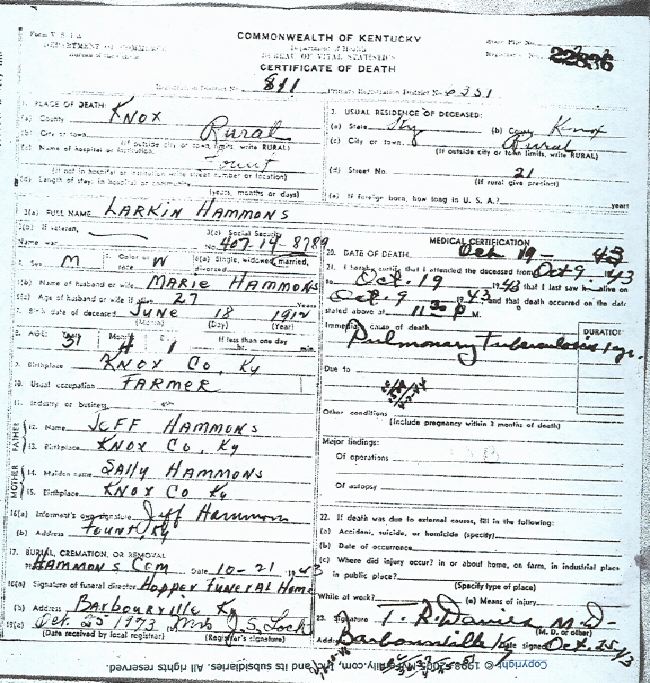 COMMONWEALTH OF KENTUCKY
Department of Health
BUREAU OF VITAL STATISTICS
CERTIFICATE OF DEATH
22836
Registration District No. 811 Primary Registration District No. 6251
1. PLACE OF DEATH:
(a) County KNOX
(b) City or town Rural
(If outside city or town limits, write RURAL)
(c) Name of hospital or institution: Fount
(If not in hospital or institution write street number or location)
(d) Length of stay: in hospital or community
(years, months or days)
2. USUAL RESIDENCE OF DECEASED:
(a) State Ky (b) County Knox
(c) City or town Rural
(If outside city or town limits, write RURAL)
(d) Street No. 21
(If rural give precinct)
(e) If foreign born, how long in U. S. A.? years
3(a) FULL NAME LARKIN HAMMONS
3(b) If veteran, Name war 3(c) Social Security No. 407-14-8789
4. Sex M 5. Color or race W 6(a) Single, widowed, married, divorced
6(b) Name of husband or wife MARIE HAMMONS
6(c) Age of husband or wife if alive 27 Years
7. Birth date of deceased JUNE 18 1912
(Month) (Day) (Year)
8. AGE: Years 31 Months 4 Days 1 If less than one day hr. min
9. Birthplace KNOX CO, KY
10. Usual occupation FARMER
11. Industry or business
FATHER 12. Name JEFF HAMMONS
13. Birthplace KNOX CO, KY
MOTHER 14. Maiden name SALLY HAMMONS
15. Birthplace KNOX CO KY
16(a) Informant's own signature Jeff Hammons
(b) Address FOUNT, KY
17. BURIAL, CREMATION, OR REMOVAL
HAMMONS CEM Date 10-21 1943
18(a) Signature of funeral director Hopper Funeral Home
(b) Address Barbourville Ky
19(a) Oct. 25 1943 (b) Mrs J. S. Lock
(Date received by local registrar) (Registrar's signature)
MEDICAL CERTIFICATION
20. DATE OF DEATH Oct 19 - 43
21. I hereby certify that I attended the deceased from Oct 9 1943
to Oct. 19 1943 that I last saw h alive on
Oct. 9 1943 and that death occurred on the date
stated above at 11:30 P M.
Immediate cause of death DURATION
Pulmonary Tuberculosis 1 yr.
Due to
Other conditions
(Include pregnancy within 3 months of death)
Major findings:
Of operations
Of autopsy
22. If death was due to external causes, fill in the following:
(a) Accident, suicide, or homicide (specify)
(b) Date of occurrence
(c) Where did injury occur? in or about home, on farm, in industrial place
in public place?
(Specify type of place)
While at work? (e) Means of injury
23. Signature T. R. Davies M.D.
(M. D. or other)
Address Barbourville Ky Date signed Oct. 25 43
Copyright © 1998-2005, MyFamily.com, Inc. and its subsidiaries. All rights reserved.